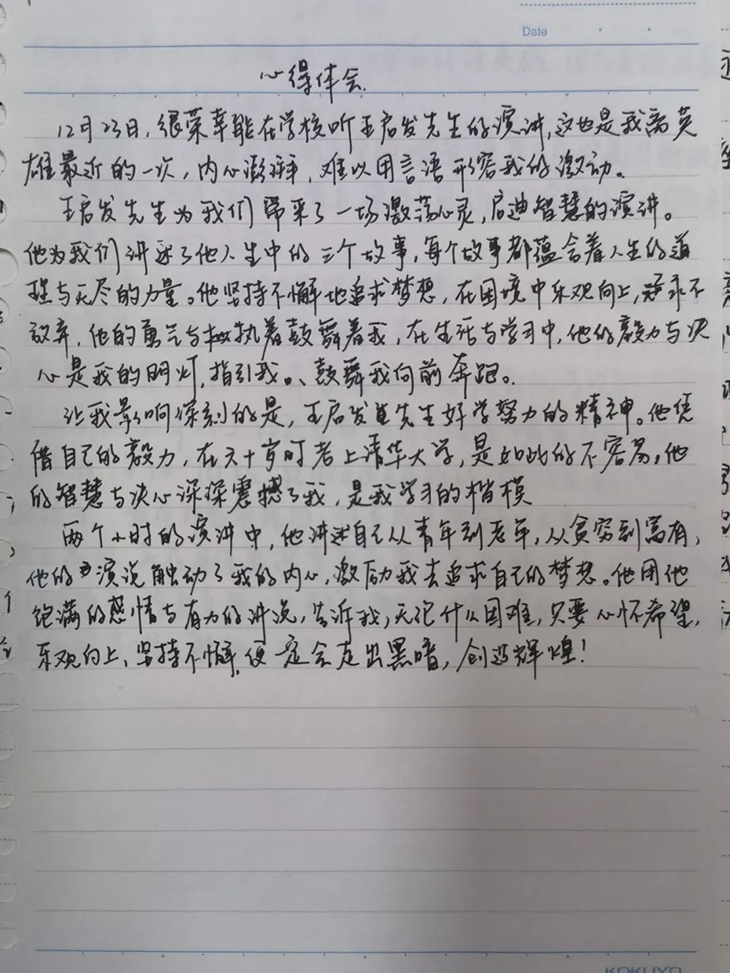 Date
心得体会.
12月23日,很荣幸能在学校听王启发先生的演讲,这也是我离英
雄最近的一次,内心澎湃,难以用言语形容我的激动。
王启发先生为我们带来了一场激荡心灵,启迪智慧的演讲。
他为我们讲述了他人生中的三个故事,每个故事都蕴含着人生的道
理与无尽的力量。他坚持不懈地追求梦想,在困境中乐观向上,永不
放弃,他的勇气与执着鼓舞着我,在生活与学习中,他的毅力与决
心是我的明灯,指引我、鼓舞我向前奔跑。
让我影响深刻的是,王启发先生好学努力的精神。他凭
借自己的毅力,在六十岁时考上清华大学,是如此的不容易,他
的智慧与决心深深震撼了我,是我学习的楷模
两个小时的演讲中,他讲述自己从青年到老年,从贫穷到富有,
他的演说触动了我的内心,激励我去追求自己的梦想。他用他
饱满的感情与有力的讲说,告诉我,无论什么困难,只要心怀希望,
乐观向上,坚持不懈,便一定会走出黑暗,创造辉煌!
KOKUYO